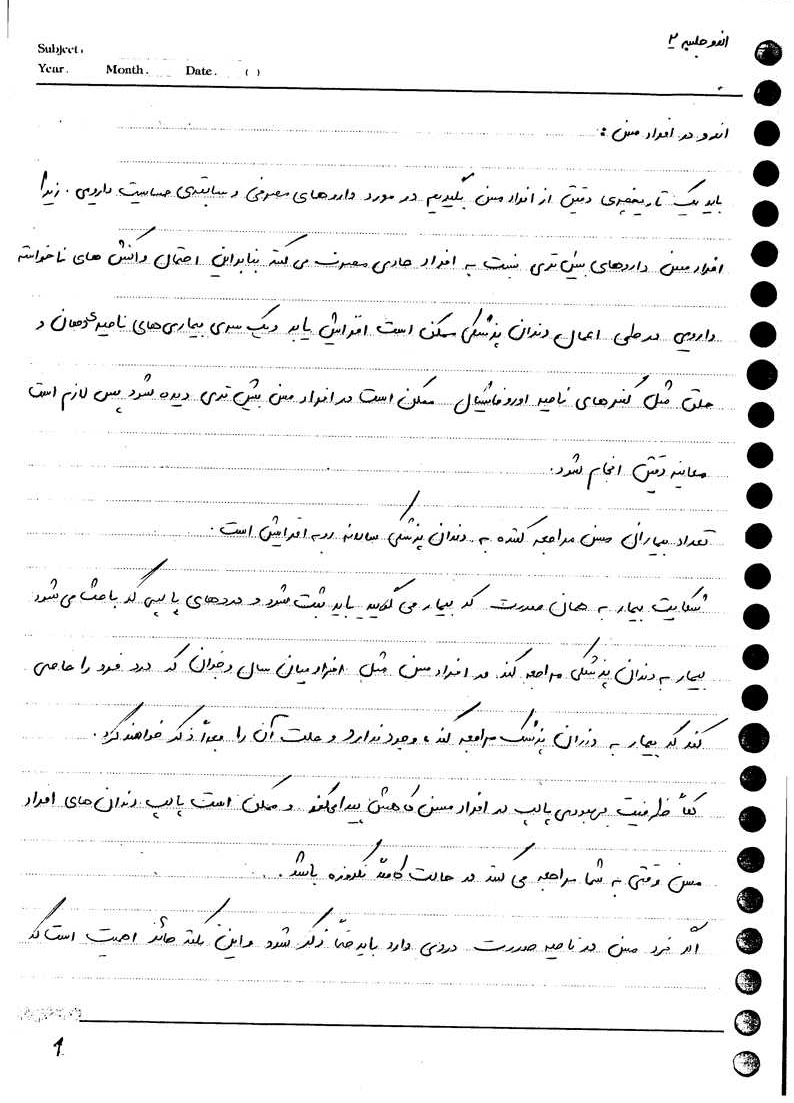 اندو جلسه ۲
Subject:
Year. Month. Date. ( )
اندو در افراد مسن :
باید یک تاریخچه‌ی دقیق از افراد مسن بگیریم در مورد داروهای مصرفی و سابقه‌ی حساسیت دارویی. زیرا
افراد مسن داروهای بیش‌تری نسبت به افراد عادی مصرف می‌کنند بنابراین احتمال واکنش های ناخواسته
دارویی در طی اعمال دندان پزشکی ممکن است افزایش یابد و یک سری بیماری‌های ناحیه دهان و
حلق مثل کنسرهای ناحیه اوروفاشیال ممکن است در افراد مسن بیش‌تری دیده شود پس لازم است
معاینه دقیق انجام شود.
تعداد بیمارانی مسن مراجعه کننده به دندان پزشکی سالانه رو به افزایش است.
شکایت بیمار به همان صورت که بیمار می‌گوید باید ثبت شود و دردهای پالپی که باعث می‌شود
بیمار به دندان پزشکی مراجعه کند در افراد مسن مثل افراد میان سال و جوان که درد فرد را عاصی
کند که بیمار به دندان پزشک مراجعه کند، وجود ندارد و علت آن را بعداً ذکر خواهند کرد.
کلاً ظرفیت بهبودی پالپ در افراد مسن کاهش پیدا می‌کند و ممکن است پالپ دندان‌های افراد
مسن وقتی به شما مراجعه می‌کنند در حالت کاملاً نکروزه باشد.
اگر فرد مسن در ناحیه صورت دردی دارد باید حتماً ذکر شود و این نکته حائز اهمیت است که
1